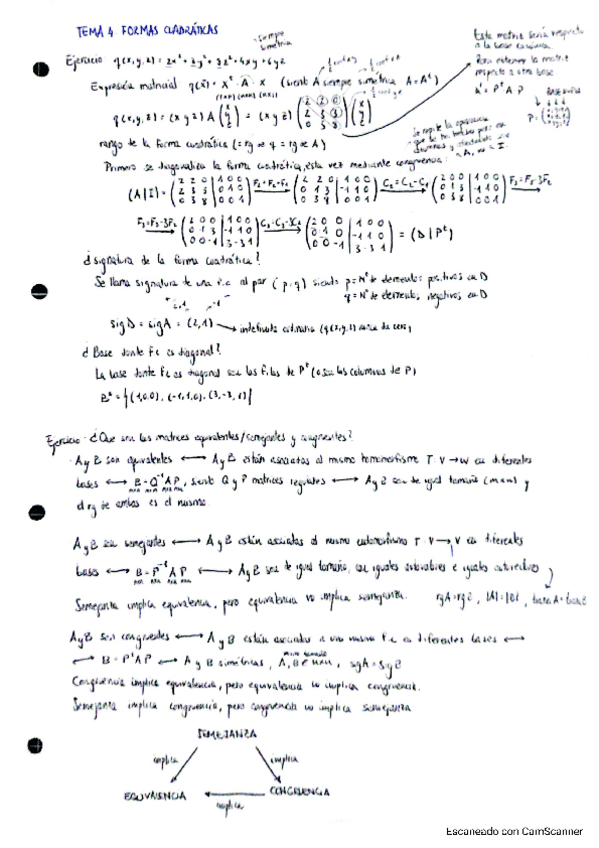 TEMA 4 FORMAS CUADRÁTICAS
siempre simétrica
Esta matriz sería respecto
a la base canónica.
Para obtener la matriz
respecto a otra base
A' = Pᵗ A P
Ejercicio q(x,y,z) = 2x² + 3y² + 8z² + 4xy + 6yz
Expresión matricial q(x̄) = Xᵗ · A · X (siendo A siempre simétrica A = Aᵗ)
q(x,y,z) = (x y z) A (x y z) = (x y z) (2 2 0 2 3 3 0 3 8) (x y z)
rango de la forma cuadrática (= rg q = rg A)
Primero se diagonaliza la forma cuadrática, esta vez mediante congruencia:
(A|I) = (2 2 0 | 1 0 0 2 3 3 | 0 1 0 0 3 8 | 0 0 1) F₂=F₂-F₁ (2 2 0 | 1 0 0 0 1 3 | -1 1 0 0 3 8 | 0 0 1) C₂=C₂-C₁ (2 0 0 | 1 0 0 0 1 3 | -1 1 0 0 3 8 | 0 0 1) F₃=F₃-3F₂
F₃=F₃-3F₂ (2 0 0 | 1 0 0 0 1 3 | -1 1 0 0 0 -1 | 3 -3 1) C₃=C₃-3C₂ (2 0 0 | 1 0 0 0 1 0 | -1 1 0 0 0 -1 | 3 -3 1) = (D | Pᵗ)
¿Signatura de la forma cuadrática?
Se llama signatura de una f.c al par (p,q) siendo p = Nº de elementos positivos en D
q = Nº de elementos negativos en D
sig D = sig A = (2,1) → indefinida
¿Base donde f.c es diagonal?
La base donde f.c es diagonal son las filas de Pᵗ (o sea las columnas de P)
B* = {(1,0,0), (-1,1,0), (3,-3,1)}
Ejercicio ¿Que son las matrices equivalentes/semejantes y congruentes?
A y B son equivalentes ⟷ A y B están asociadas al mismo homomorfismo T: V → W en diferentes
bases ⟷ B = Q⁻¹ A P, siendo Q y P matrices regulares ⟷ A y B son de igual tamaño (m×n) y
el rg de ambas es el mismo.
A y B son semejantes ⟷ A y B están asociadas al mismo endomorfismo T: V → V en diferentes
bases ⟷ B = P⁻¹ A P ⟷ A y B son de igual tamaño, con iguales autovalores e iguales autovectores
Semejanza implica equivalencia, pero equivalencia no implica semejanza. rgA = rgB, |A| = |B|, traza A = traza B
A y B son congruentes ⟷ A y B están asociadas a una misma f.c en diferentes bases ⟷
⟷ B = Pᵗ A P ⟷ A y B simétricas, mismo tamaño, sgA = sgB
Congruencia implica equivalencia, pero equivalencia no implica congruencia.
Semejanza implica congruencia, pero congruencia no implica semejanza
SEMEJANZA
implica implica
EQUIVALENCIA CONGRUENCIA
implica
Escaneado con CamScanner